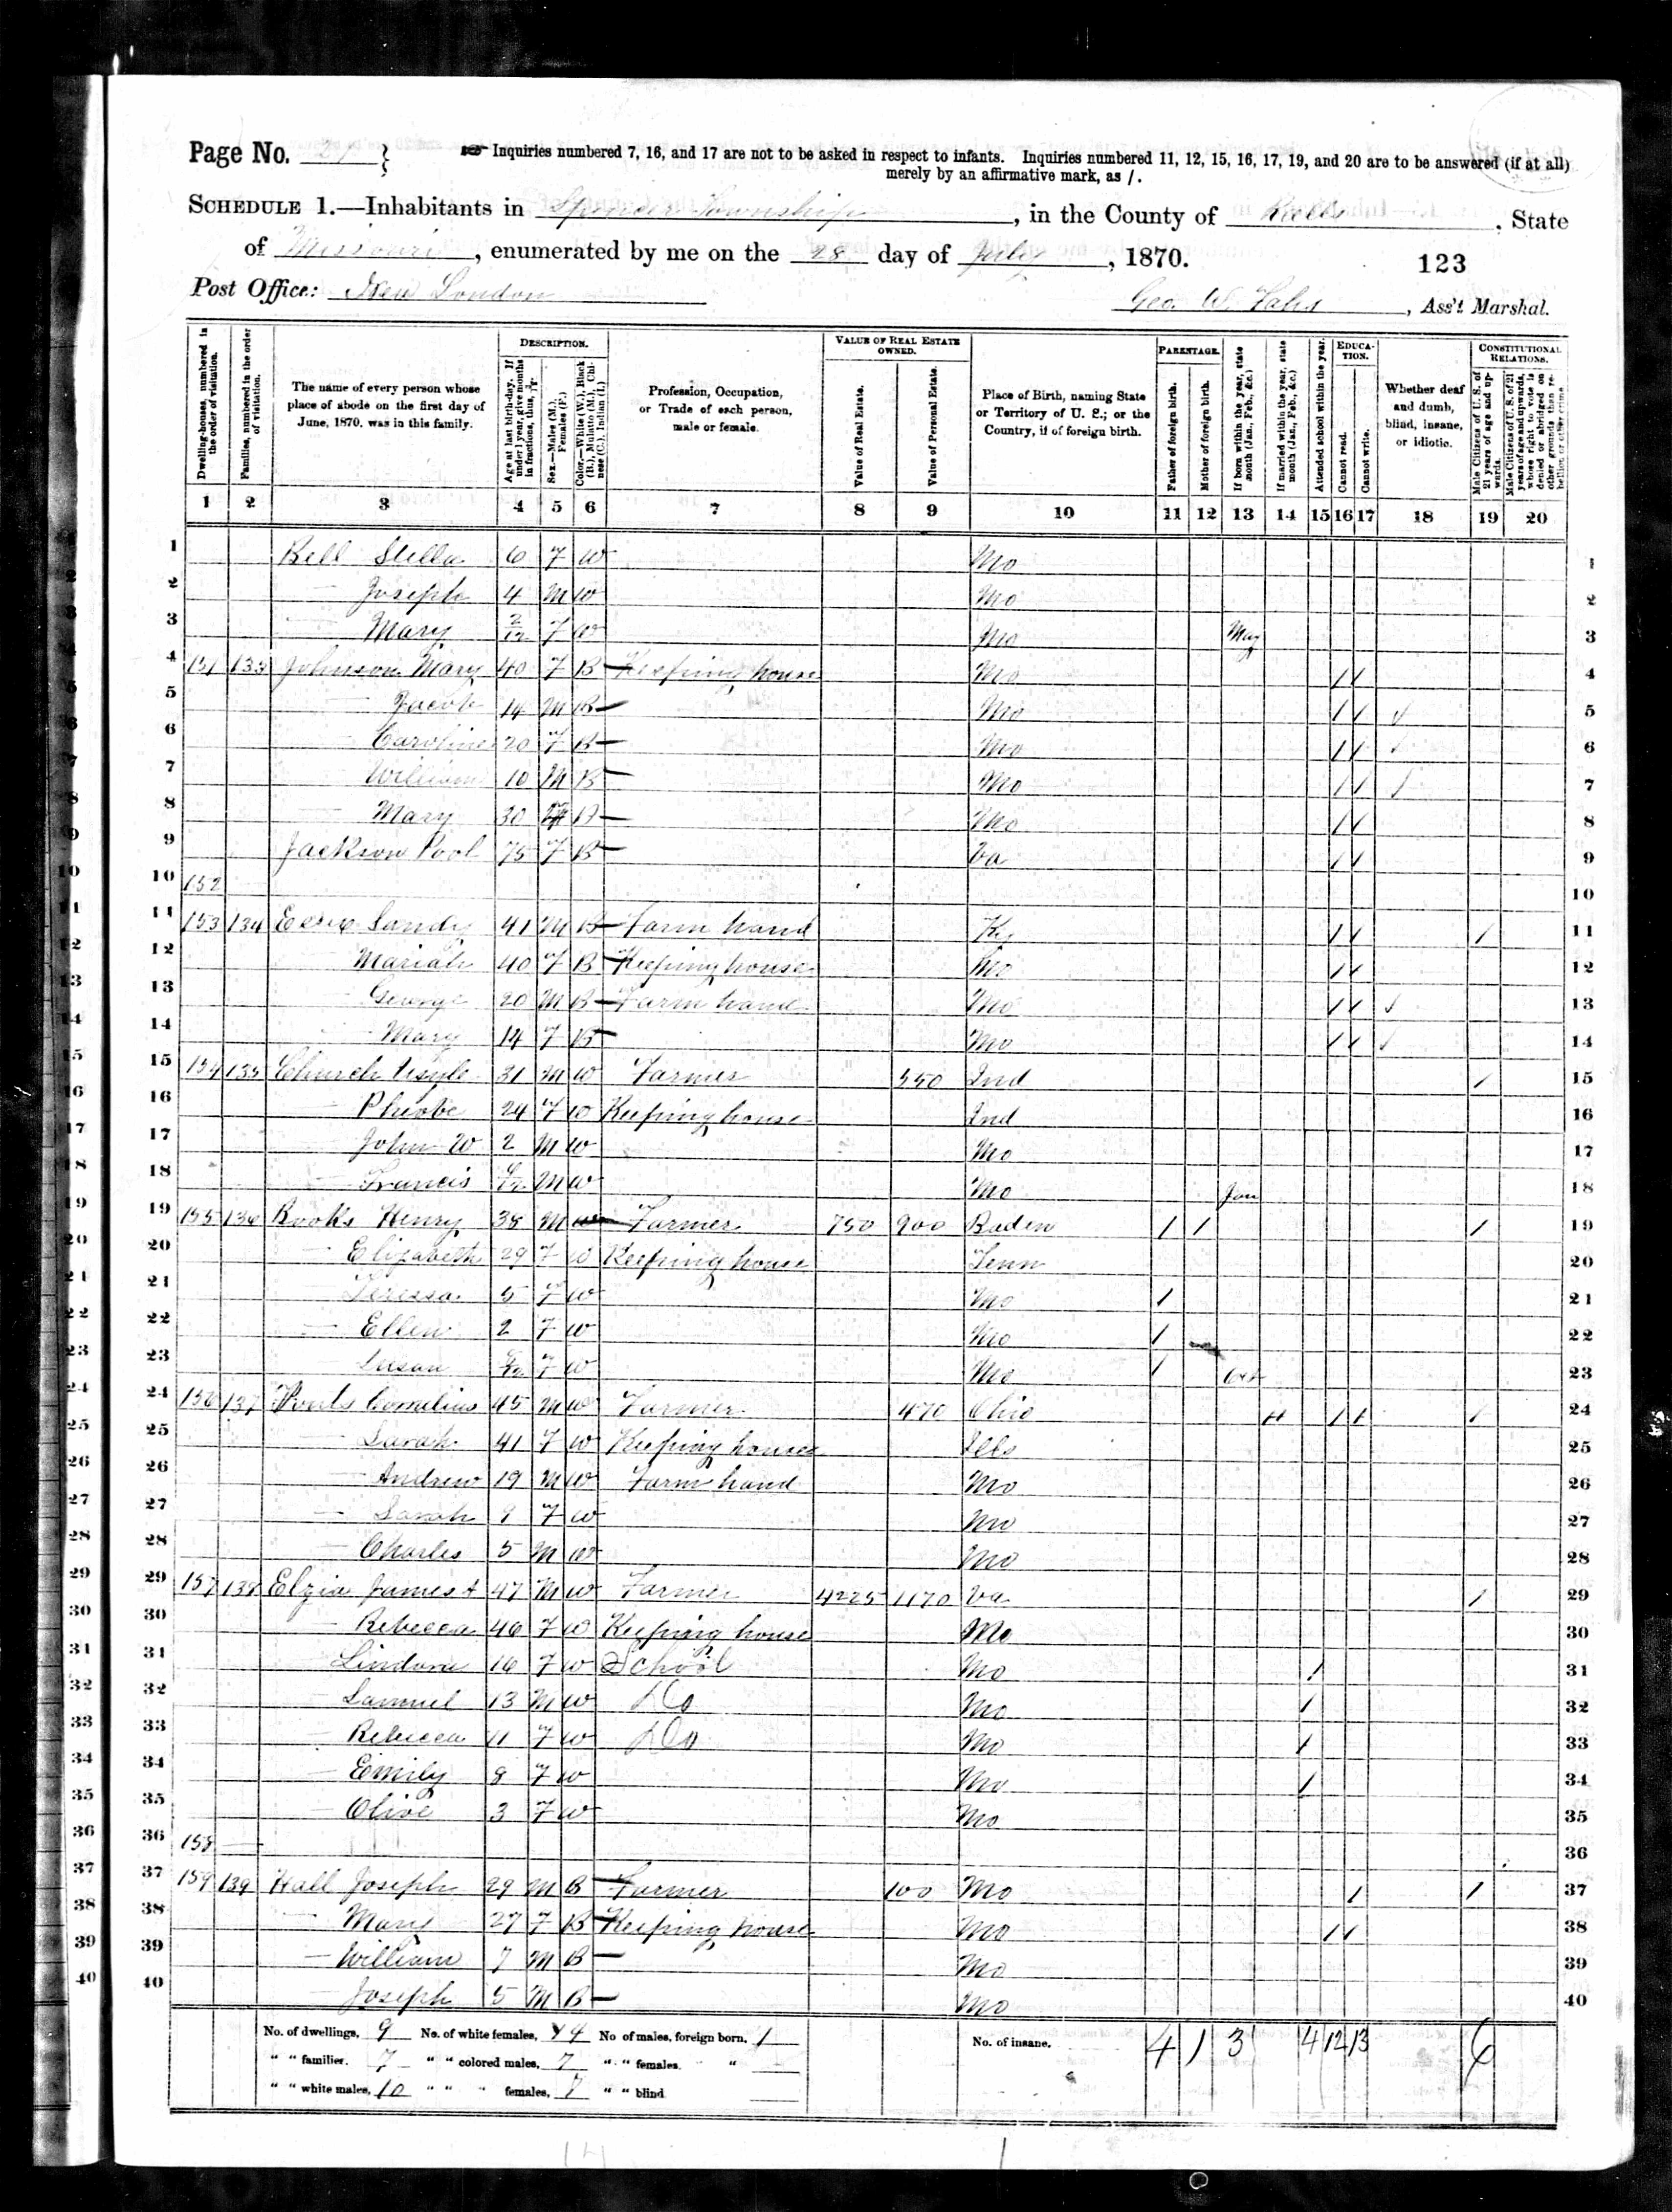 Page No. 21 }
Inquiries numbered 7, 16, and 17 are not to be asked in respect to infants. Inquiries numbered 11, 12, 15, 16, 17, 19, and 20 are to be answered (if at all)
merely by an affirmative mark, as /.
SCHEDULE 1.—Inhabitants in Spencer Township, in the County of Ralls, State
of Missouri, enumerated by me on the 28 day of July, 1870.
123
Post Office: New London
Geo. W. , Ass't Marshal.
Dwelling-houses, numbered in the order of visitation.
Families, numbered in the order of visitation.
The name of every person whose place of abode on the first day of June, 1870, was in this family.
DESCRIPTION.
Age at last birth-day. If under 1 year, give months in fractions, thus, 3/12.
Sex.—Males (M.), Females (F.)
Color.—White (W.), Black (B.), Mulatto (M.), Chinese (C.), Indian (I.)
Profession, Occupation, or Trade of each person, male or female.
VALUE OF REAL ESTATE OWNED.
Value of Real Estate.
Value of Personal Estate.
Place of Birth, naming State or Territory of U. S.; or the Country, if of foreign birth.
PARENTAGE.
Father of foreign birth.
Mother of foreign birth.
If born within the year, state month (Jan., Feb., &c.)
If married within the year, state month (Jan., Feb., &c.)
Attended school within the year.
EDUCATION.
Cannot read.
Cannot write.
Whether deaf and dumb, blind, insane, or idiotic.
CONSTITUTIONAL RELATIONS.
Male Citizens of U. S. of 21 years of age and upwards.
Male Citizens of U. S. of 21 years of age and upwards, whose right to vote is denied or abridged on other grounds than rebellion or other crime.
1 2 3 4 5 6 7 8 9 10 11 12 13 14 15 16 17 18 19 20
1 Bell Stella 6 F W Mo 1
2 — Joseph 4 M W Mo 2
3 — Mary 2/12 F W Mo May 3
4 151 133 Johnson Mary 40 F B Keeping house Mo / / 4
5 — Jacob 14 M B — Mo / / 5
6 — Caroline 20 F B — Mo / / 6
7 — William 10 M B — Mo / / / 7
8 — Mary 30 F B — Mo / / 8
9 Jackson Pool 75 F B — Va / / 9
10 152 10
11 153 134 Essex Sandy 41 M B Farm hand Ky / / / 11
12 — Mariah 40 F B Keeping house Mo / / 12
13 — George 20 M B Farm hand Mo / / 13
14 — Mary 14 F B — Mo / / 14
15 154 135 Church 31 M W Farmer 550 Ind / 15
16 — Pheobe 24 F W Keeping house Ind 16
17 — John W 2 M W Mo 17
18 — Francis M W Mo Jan 18
19 155 136 Books Henry 38 M W Farmer 750 900 Baden / / / 19
20 — Elizabeth 29 F W Keeping house Tenn 20
21 — Teressa 5 F W Mo / 21
22 — Ellen 2 F W Mo / 22
23 — Susan F W Mo / Oct 23
24 156 137 Fouts Cornelius 45 M W Farmer 470 Ohio / / / 24
25 — Sarah 41 F W Keeping house Ills 25
26 — Andrew 19 M W Farm hand Mo 26
27 — Sarah 9 F W Mo 27
28 — Charles 5 M W Mo 28
29 157 138 Elzia James A 47 M W Farmer 4225 1170 Va / 29
30 — Rebecca 46 F W Keeping house Mo 30
31 Lindora 16 F W School Mo / 31
32 — Samuel 13 M W Do Mo / 32
33 — Rebecca 11 F W Do Mo / 33
34 — Emily 8 F W Mo / 34
35 — Olive 3 F W Mo 35
36 158 — 36
37 159 139 Hall Joseph 29 M B Farmer 100 Mo / / 37
38 — Mary 27 F B Keeping house Mo / / 38
39 — William 7 M B — Mo 39
40 — Joseph 5 M B — Mo 40
No. of dwellings, 9 No. of white females, 14 No of males, foreign born, 1 No. of insane, 4 1 3 4 12 13 6
" " families. 7 " " colored males, 7 " " females. "
" " white males, 10 " " " females, 7 " " blind